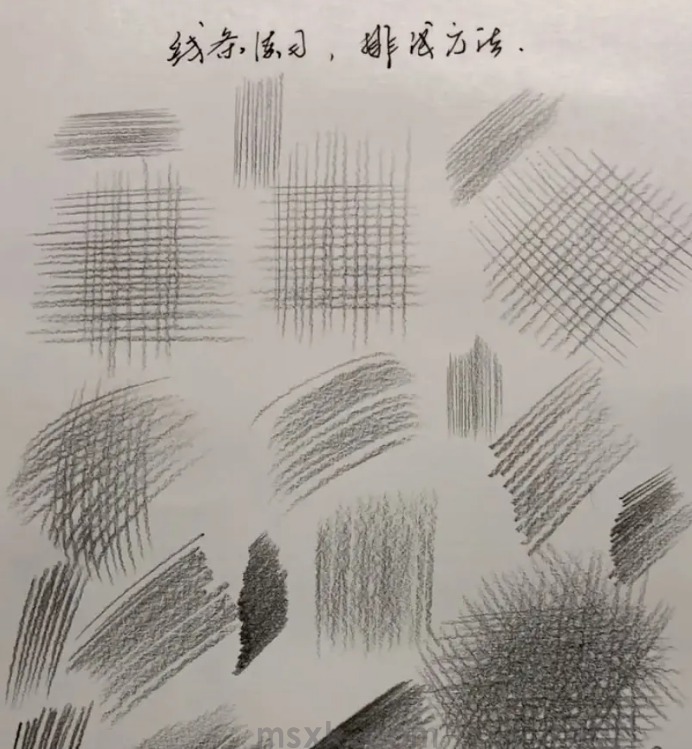 线条练习，排线方法.